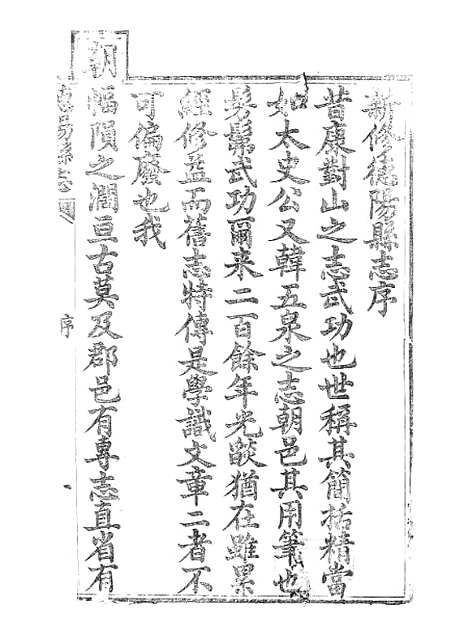 新修德陽縣志序
昔康對山之志武功也世稱其簡括精當
如太史公又韓五泉之志朝邑其用筆也
髣髴武功爾来二百餘年光燄猶在雖累
經修益而舊志特傳是學識文章二者不
可偏廢也我
朝幅隕之濶亘古莫及郡邑有專志直省有
德陽縣志
序